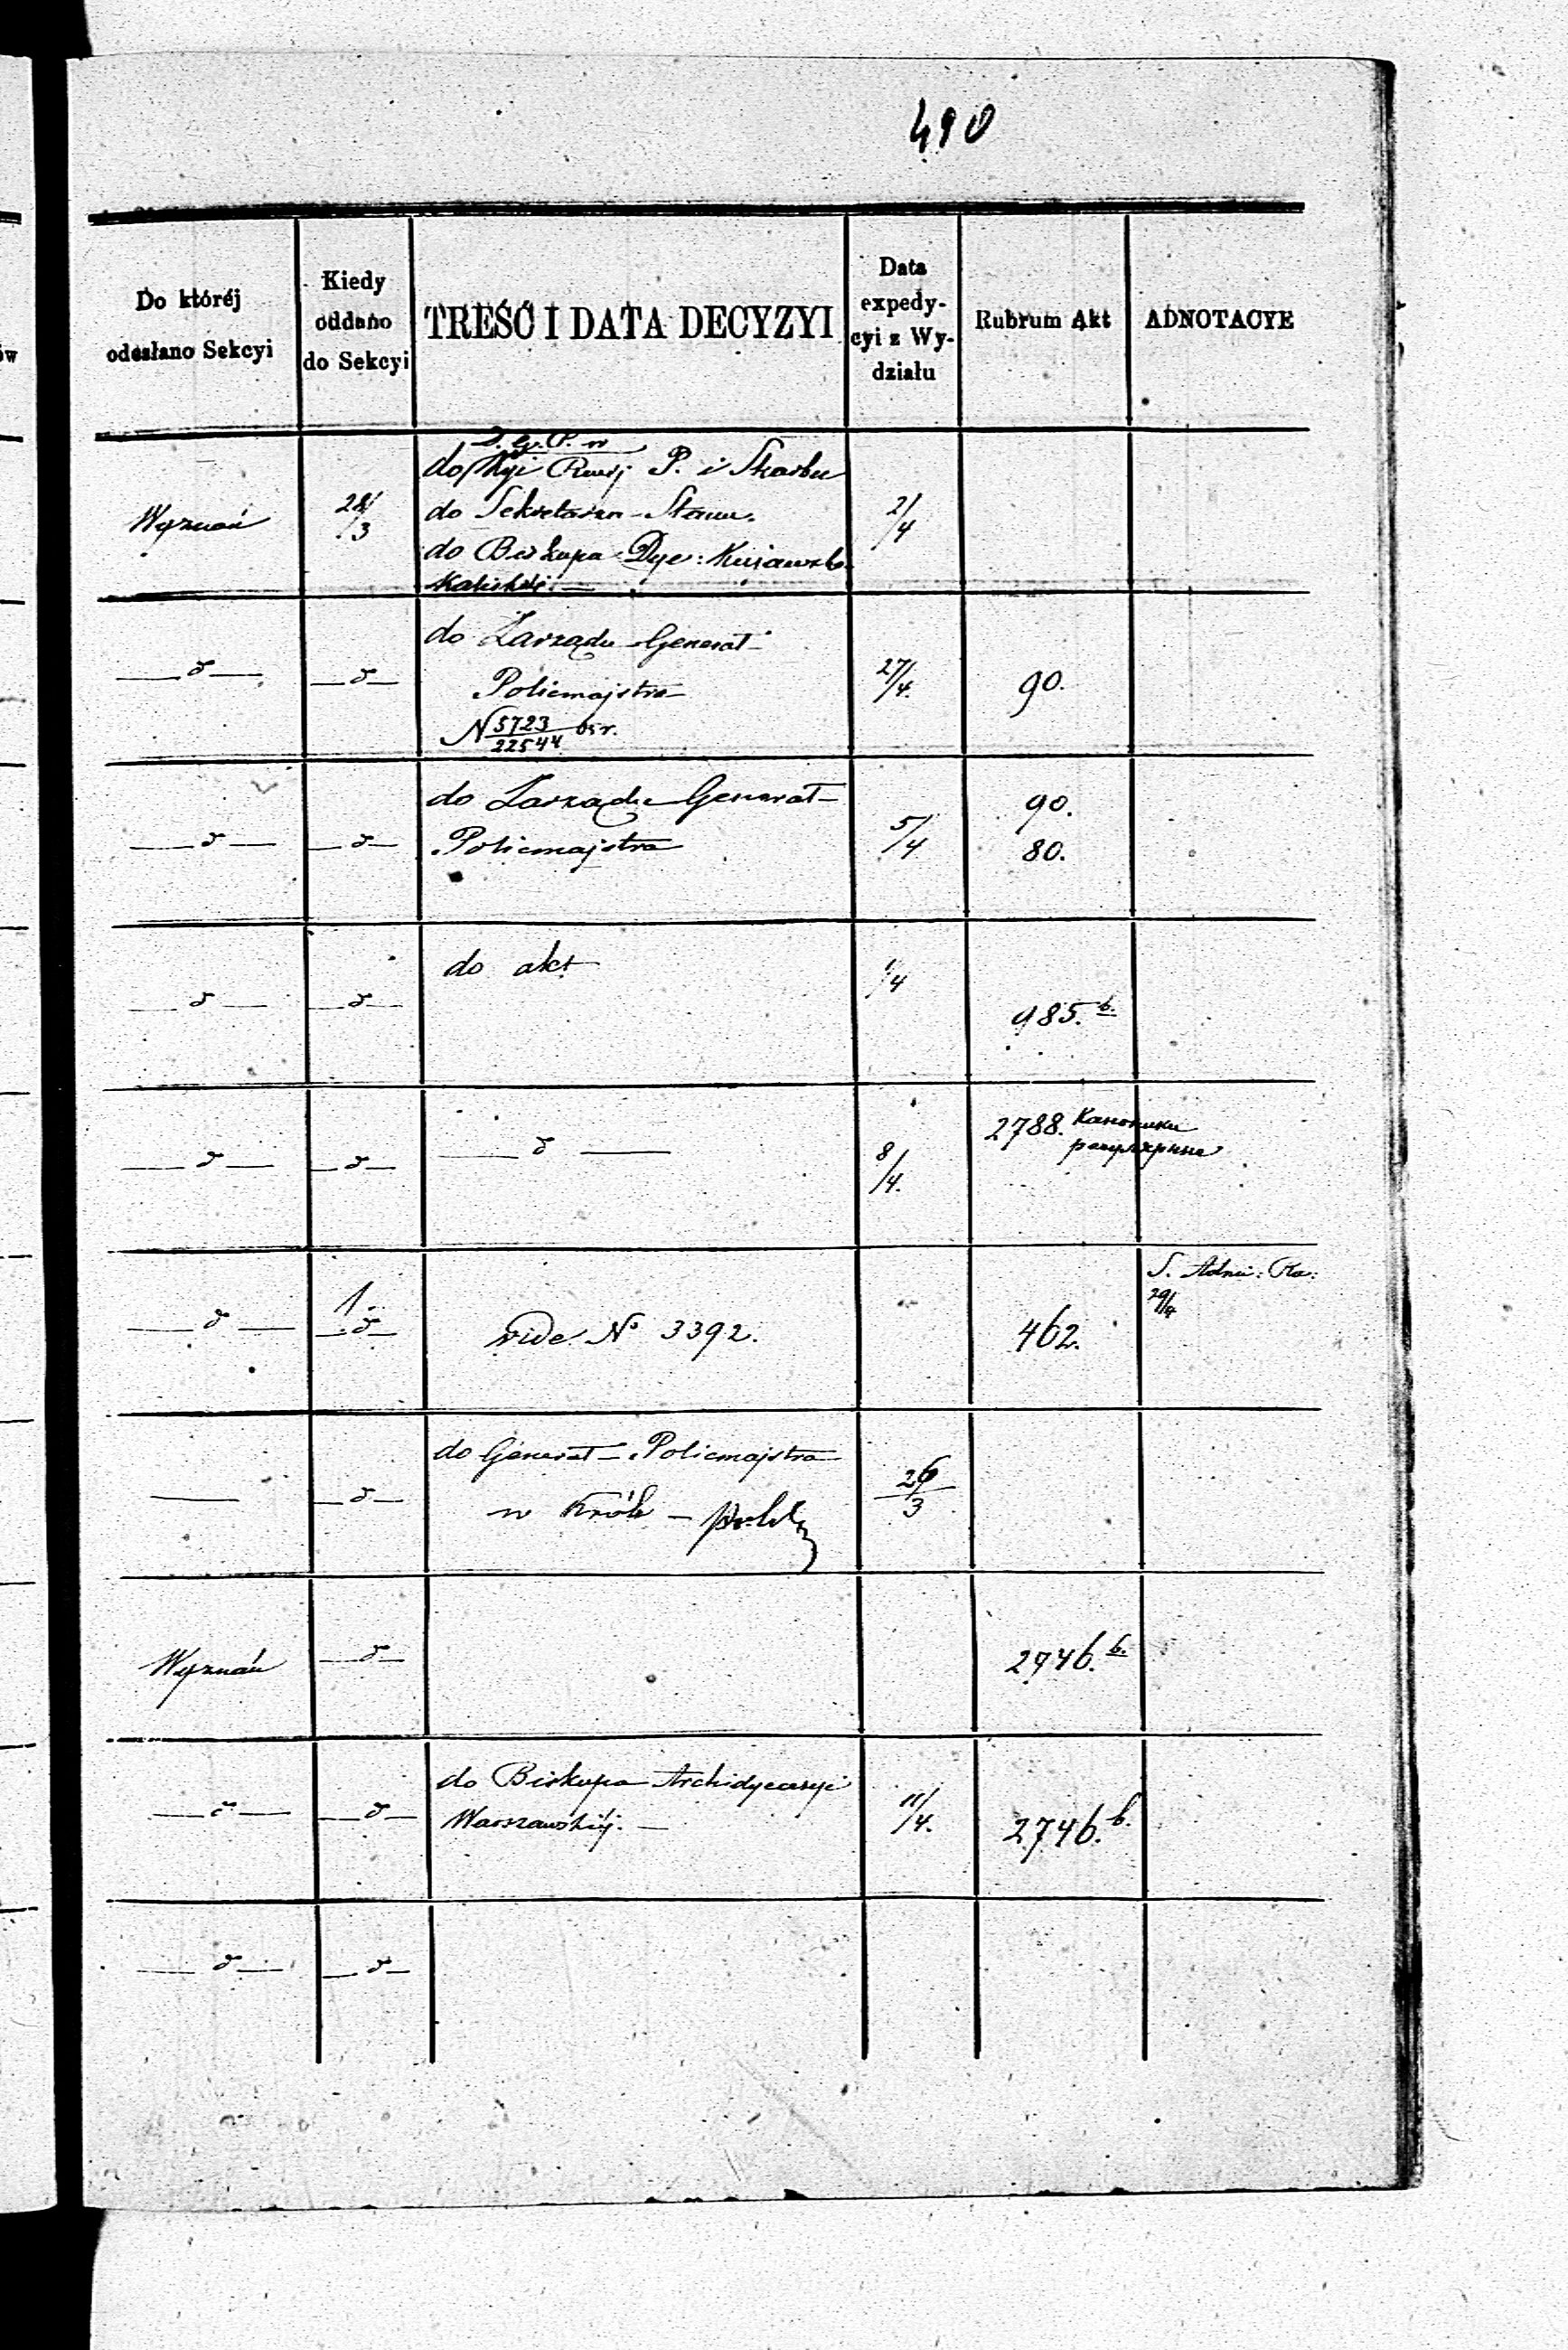 490
Do któréj
odesłano Sekcyi
Kiedy
oddano
do Sekcyi
TREŚĆ I DATA DECYZYI
Data
expedy-
cyi z Wy-
działu
Rubrum Akt
ADNOTACYE
Wyznań
28/3
do P. i Skarbu
do Sekretarza Stanu.
do Biskupa Dye: Kujawsko
Kaliskiéj. —
2/4
— d —
— d —
do Zarządu Generał-
Policmajstra
N 5723/22544
27/4.
90.
— d —
— d —
do Zarządu Generał-
Policmajstra
5/4
90.
80.
— d —
— d —
do akt
1/4
985. b.
— d —
— d —
— d —
8/4.
2788. Каноники
регулярные
— d —
1.
— d —
vide No 3392.
462.
S. Adm: Ra:
29/4
—
— d —
do Generał-Policmajstra
w Król-
26/3
Wyznań
— d —
2746. b.
— d —
— d —
do Biskupa Archidyecezyi
Warszawskiéj. —
11/4.
2746. b.
— d —
— d —